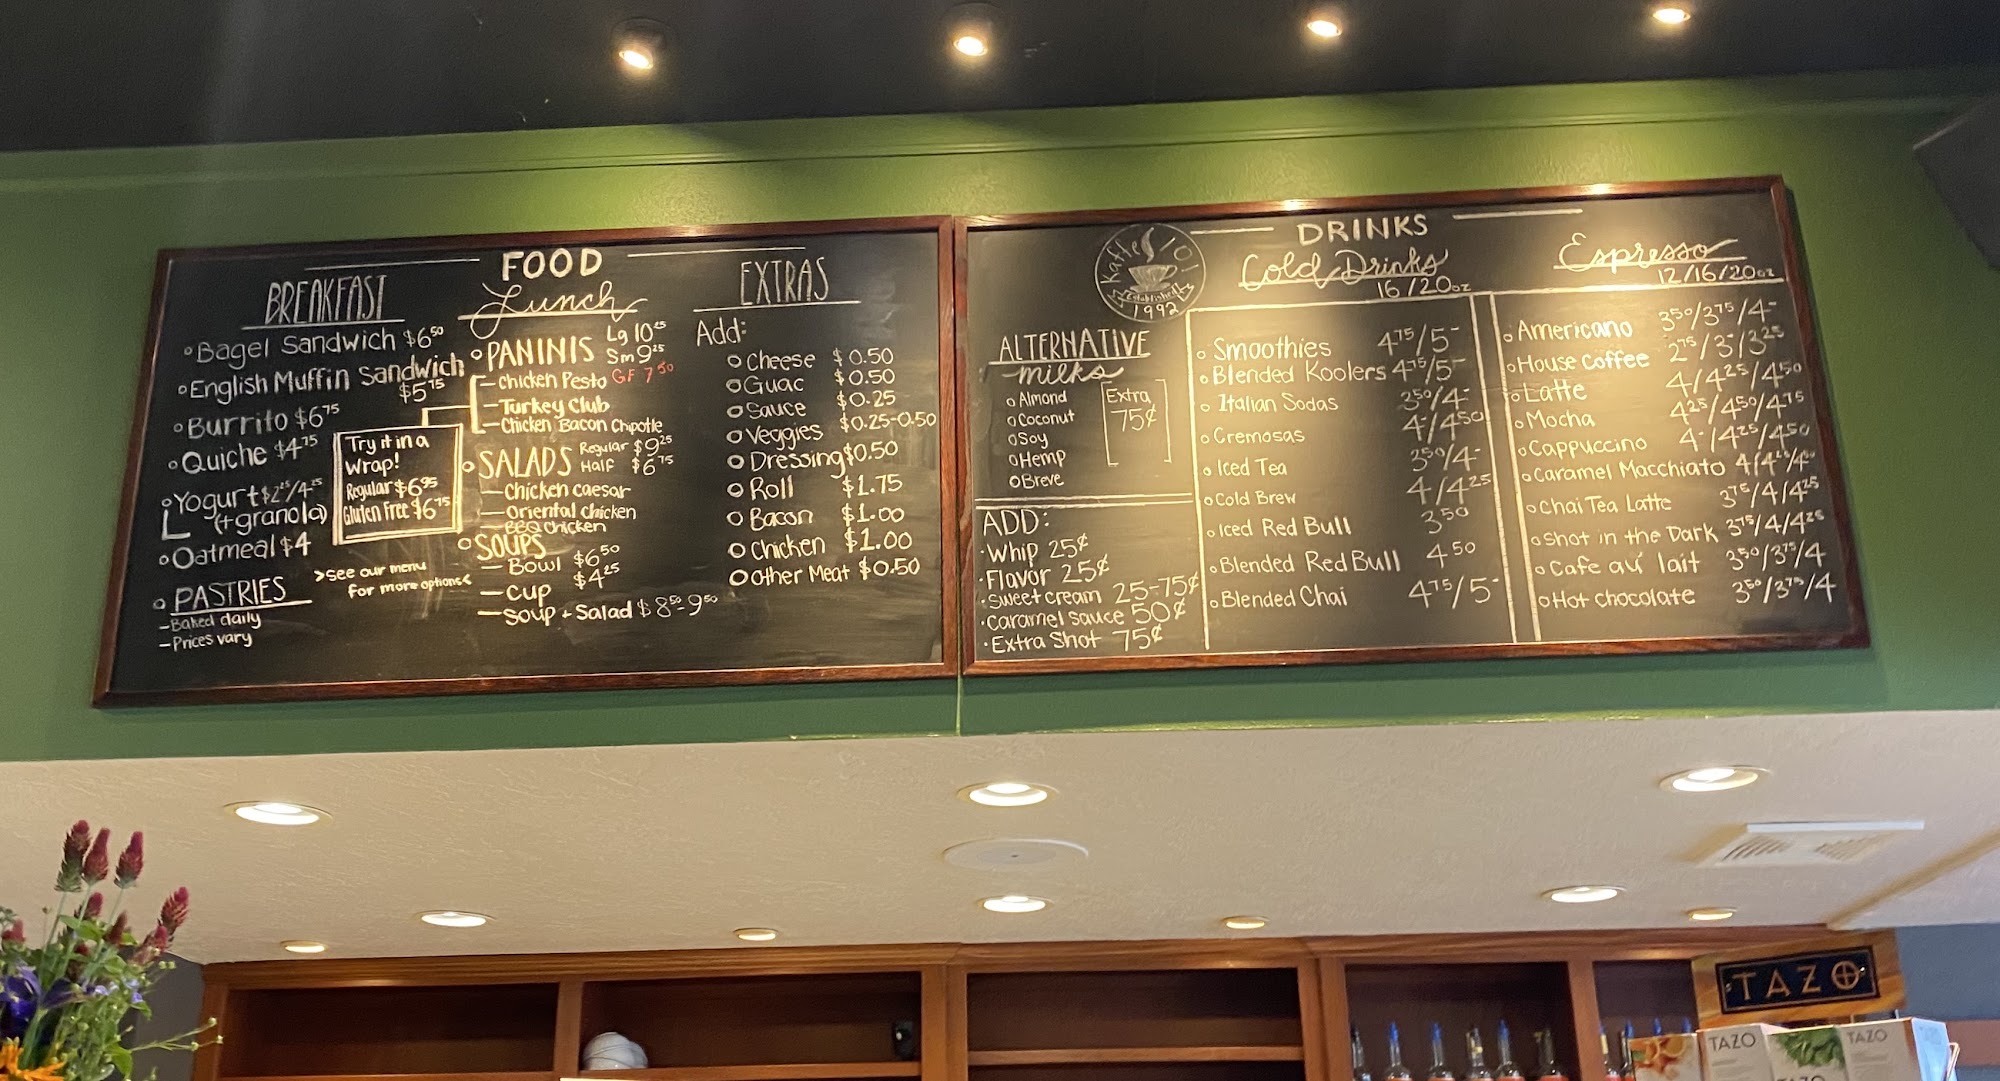 FOOD
BREAKFAST
Bagel Sandwich $6.50
English Muffin Sandwich
$5.75
Burrito $6.75
Quiche $4.75
Yogurt $2.25/4.25
(+granola)
Oatmeal $4
PASTRIES
-Baked daily
-Prices vary
Lunch
PANINIS Lg 10.25
Sm 9.25
GF 7.50
-Chicken Pesto
-Turkey Club
-Chicken Bacon Chipotle
Try it in a
Wrap!
Regular $6.95
Gluten Free $6.75
SALADS Regular $9.25
Half $6.75
-Chicken caesar
-Oriental Chicken
-BBQ Chicken
SOUPS
-Bowl $6.50
-Cup $4.25
-Soup + Salad $8.50-9.50
>See our menu
for more options<
EXTRAS
Add:
Cheese $0.50
Guac $0.50
Sauce $0.25
Veggies $0.25-0.50
Dressing $0.50
Roll $1.75
Bacon $1.00
Chicken $1.00
Other Meat $0.50
Kaffe 101
Established
1992
DRINKS
ALTERNATIVE
milks
Almond
Coconut
Soy
Hemp
Breve
Extra
75¢
ADD:
·Whip 25¢
·Flavor 25¢
·Sweet cream 25-75¢
·Caramel sauce 50¢
·Extra Shot 75¢
Cold Drinks
16/20oz
Smoothies 4.75/5-
Blended Koolers 4.75/5-
Italian Sodas 3.50/4-
Cremosas 4-/4.50
Iced Tea 3.50/4-
Cold Brew 4/4.25
Iced Red Bull 3.50
Blended Red Bull 4.50
Blended Chai 4.75/5-
Espresso
12/16/20oz
Americano 3.50/3.75/4-
House Coffee 2.75/3-/3.25
Latte 4/4.25/4.50
Mocha 4.25/4.50/4.75
Cappuccino 4-/4.25/4.50
Caramel Macchiato 4/4.25/4.50
Chai Tea Latte 3.75/4/4.25
Shot in the Dark 3.75/4/4.25
Cafe au lait 3.50/3.75/4
Hot chocolate 3.50/3.75/4
TAZO
TAZO
TAZO
TAZO